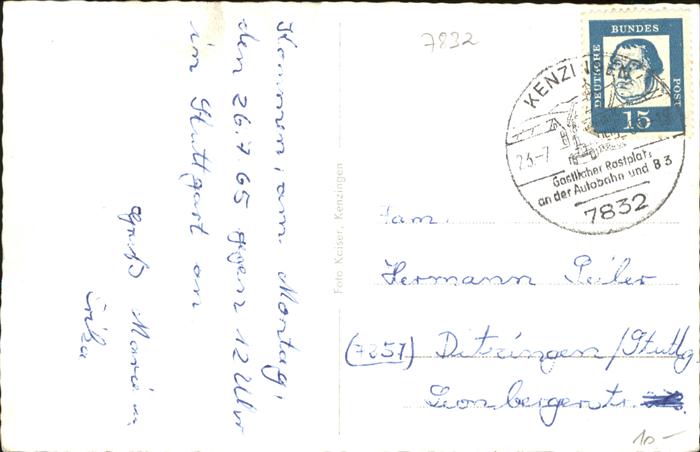 Kommen am Montag,
den 26.7.65 gegen 12 Uhr
in Stuttgart an.
Gruß Maria u.
Erika
Foto Kaiser, Kenzingen
7832
DEUTSCHE BUNDES POST
15
KENZINGEN
23-7
Gastlicher Rastplatz
an der Autobahn und B 3
7832
Fam.
Hermann Peiler
(7257) Ditzingen/Stuttg
Leonbergerstr.
10.-